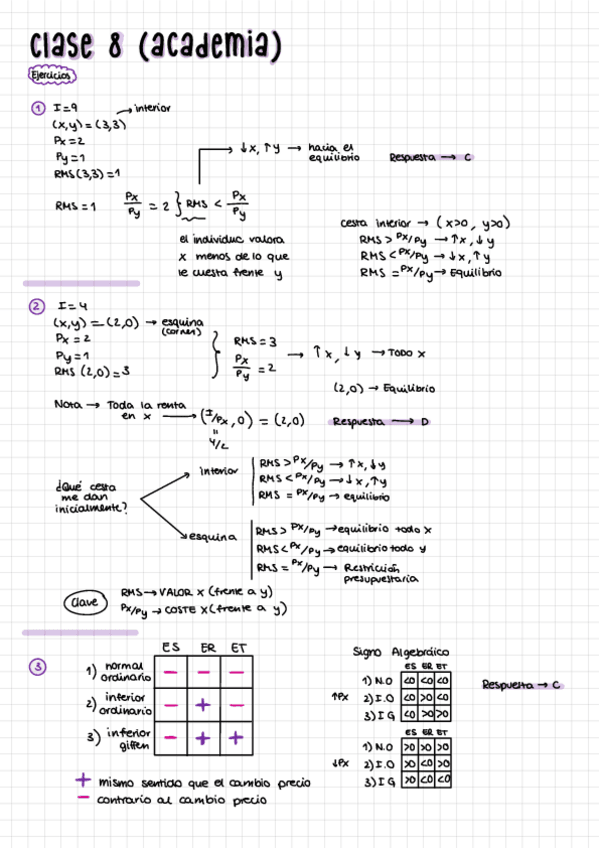 Clase 8 (academia)
Ejercicios
1 I=9 → interior
(x,y) = (3,3)
Px=2
Py=1
RMS(3,3)=1
↓x, ↑y → hacia el equilibrio
Respuesta → C
RMS=1 Px/Py = 2 } RMS < Px/Py
el individuo valora
x menos de lo que
le cuesta frente y
cesta interior → (x>0, y>0)
RMS > Px/Py → ↑x, ↓y
RMS < Px/Py → ↓x, ↑y
RMS = Px/Py → Equilibrio
2 I=4
(x,y) = (2,0) → esquina
(corner)
Px = 2
Py = 1
RMS (2,0)=3
RMS=3
Px/Py = 2
→ ↑x, ↓y → TODO x
(2,0) → Equilibrio
Nota → Toda la renta
en x → (I/Px, 0) = (2,0)
=
4/2
Respuesta → D
¿Qué cesta
me dan
inicialmente?
interior
RMS > Px/Py → ↑x, ↓y
RMS < Px/Py → ↓x, ↑y
RMS = Px/Py → equilibrio
esquina
RMS > Px/Py → equilibrio todo x
RMS < Px/Py → equilibrio todo y
RMS = Px/Py → Restricción
presupuestaria
Clave
RMS → VALOR X (frente a y)
Px/Py → COSTE X (frente a y)
3
ES ER ET
1) normal ordinario − − −
2) inferior ordinario − + −
3) inferior giffen − + +
+ mismo sentido que el cambio precio
− contrario al cambio precio
Signo Algebráico
ES ER ET
↑Px
1) N.O <0 <0 <0
2) I.O <0 >0 <0
3) I G <0 >0 >0
ES ER ET
↓Px
1) N.O >0 >0 >0
2) I.O >0 <0 >0
3) I G >0 <0 <0
Respuesta → C